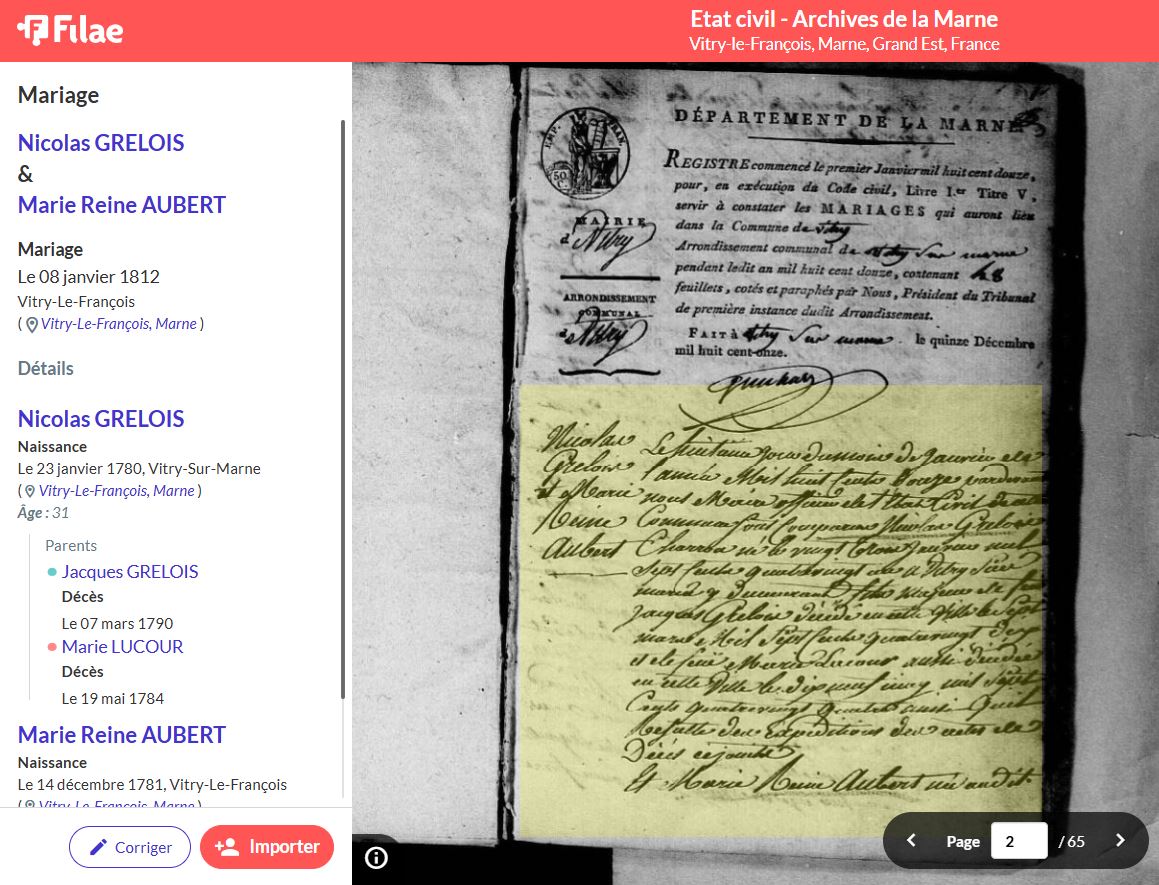 Filae
Etat civil - Archives de la Marne
Vitry-le-François, Marne, Grand Est, France
Mariage
Nicolas GRELOIS
&
Marie Reine AUBERT
Mariage
Le 08 janvier 1812
Vitry-Le-François
( Vitry-Le-François, Marne )
Détails
Nicolas GRELOIS
Naissance
Le 23 janvier 1780, Vitry-Sur-Marne
( Vitry-Le-François, Marne )
Âge : 31
Parents
Jacques GRELOIS
Décès
Le 07 mars 1790
Marie LUCOUR
Décès
Le 19 mai 1784
Marie Reine AUBERT
Naissance
Le 14 décembre 1781, Vitry-Le-François
( Vitry-Le-François, Marne )
Corriger
Importer
EMP. FRAN.
50
C.
MAIRIE
de Vitry
ARRONDISSEMENT
COMMUNAL
de Vitry
DÉPARTEMENT DE LA MARNE
REGISTRE commencé le premier Janvier mil huit cent douze,
pour, en exécution du Code civil, Livre I.er Titre V,
servir à constater les MARIAGES qui auront lieu
dans la Commune de Vitry
Arrondissement communal de Vitry sur marne
pendant ledit an mil huit cent douze, contenant 48
feuillets, cotés et paraphés par Nous, Président du Tribunal
de première instance dudit Arrondissement.
FAIT à Vitry sur marne le quinze Décembre
mil huit cent-onze.
Nicolas
Grelois
et Marie
Reine
Aubert
Le huitieme jour du mois de Janvier de
l'année Mil huit Cents Douze pardevant
nous Maire officier de l'Etat Civil de
Commune sont Comparus Nicolas Grelois
Charron né le vingt trois Janvier mil
Sept Cents quatrevingt a Vitry sur
marne y demeurant fils majeur de feu
Jacques Grelois décédé en cette Ville le Sept
mars Mil Sept Cents quatrevingt Dix
et de feüe Marie Lucour aussi décédée
en cette Ville le dix neuf may mil Sept
Cents quatrevingt quatre ainsi qu'il
Resulte des Expeditions des actes de
Décès cy joints
Et Marie Reine Aubert née audit
Page 2 / 65